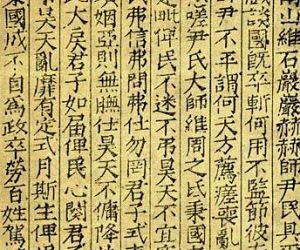 山維石巖巖赫赫師尹民具
談國既卒斬何用不監節彼
尹不平謂何天方薦瘥喪亂
嗟尹氏大師維周之氐秉國
毗俾民不迷不弔昊天不宜
弗信弗問弗仕勿罔君子式夷
姻亞則無膴仕昊天不傭降
此大戾君子如屆俾民心闋君
昊天亂靡有定式月斯生俾
秉國成不自為政卒勞百姓駕